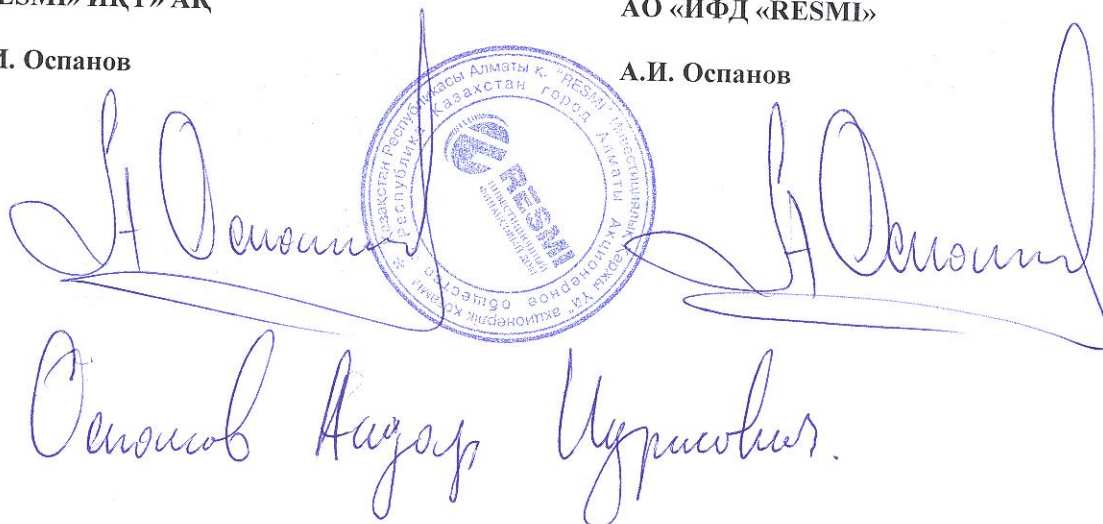 ESMI» ИҚҮ» АҚ
АО «ИФД «RESMI»
И. Оспанов
А.И. Оспанов
Қазақстан Республикасы Алматы қ. "RESMI" Инвестициялық Қаржы Үйі" акционерлік қоғамы
Республика Казахстан город Алматы Акционерное общество
RESMI
ИНВЕСТИЦИОННЫЙ
ФИНАНСОВЫЙ ДОМ
Оспанов Айдар Идрисович.